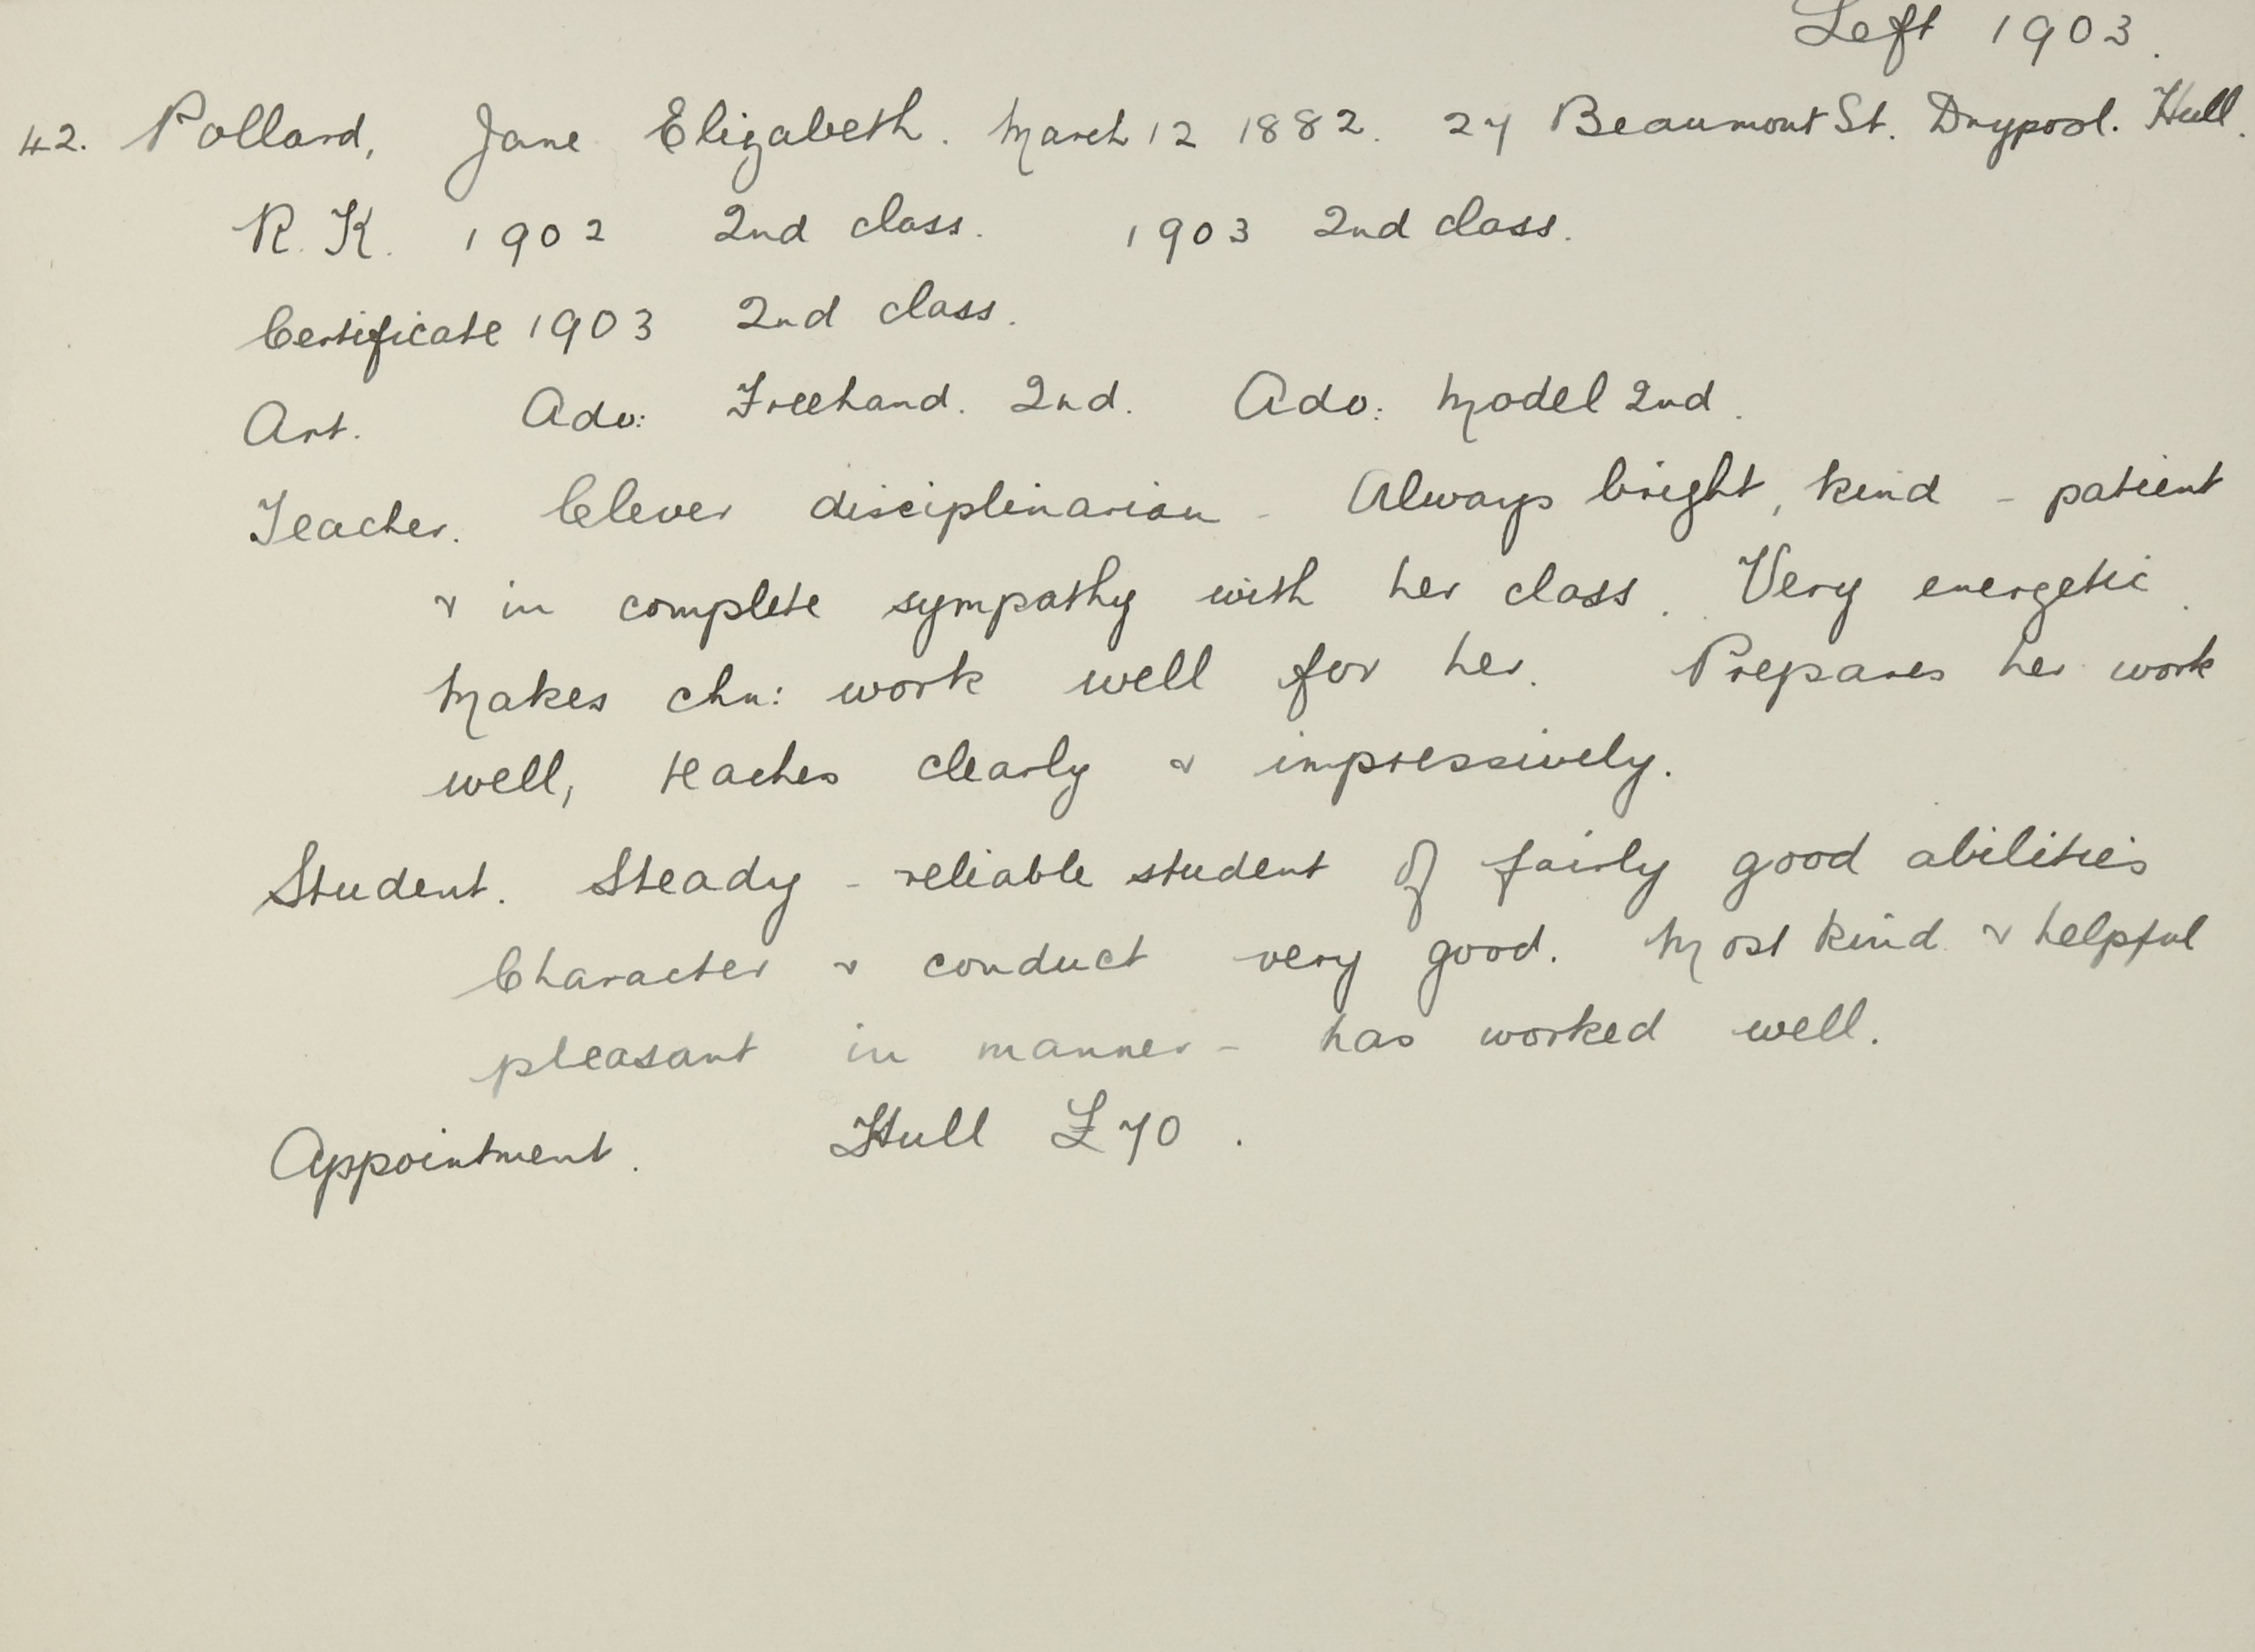 Left 1903.
42. Pollard, Jane Elizabeth. March 12 1882. 27 Beaumont St. Drypool. Hull.
R. K. 1902 2nd class. 1903 2nd class.
Certificate 1903 2nd class.
Art. Adv: Freehand. 2nd. Adv: Model 2nd.
Teacher. Clever disciplinarian - Always bright, kind - patient
& in complete sympathy with her class. Very energetic.
Makes chn: work well for her. Prepares her work
well, teaches clearly & impressively.
Student. Steady - reliable student of fairly good abilities
Character & conduct very good. Most kind & helpful
pleasant in manner - has worked well.
Appointment. Hull £70.